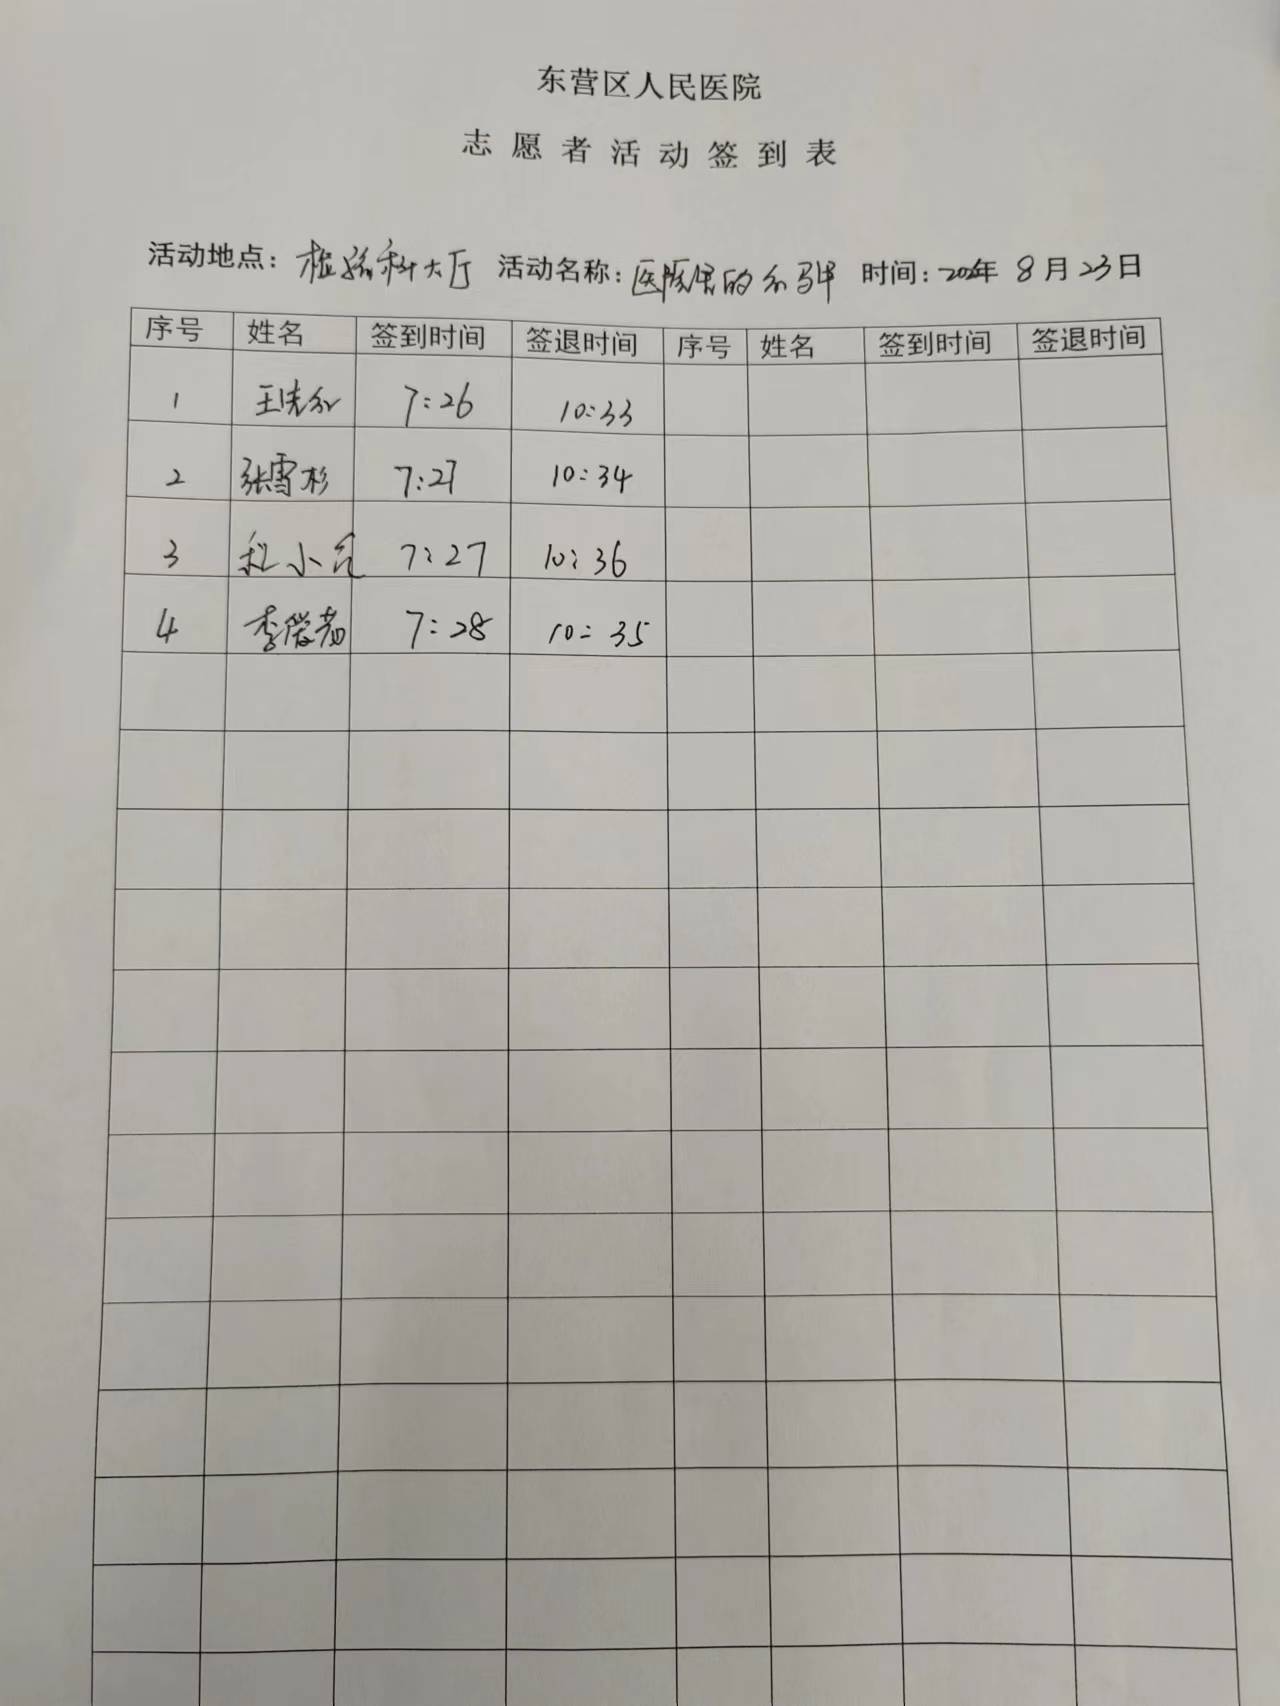 东营区人民医院
志愿者活动签到表
活动地点：检验科大厅 活动名称： 时间： 年 8月23日
序号 姓名 签到时间 签退时间 序号 姓名 签到时间 签退时间
1 王 7:26 10:33
2 张雪杉 7:27 10:34
3 小 7:27 10:36
4 李 7:28 10:35